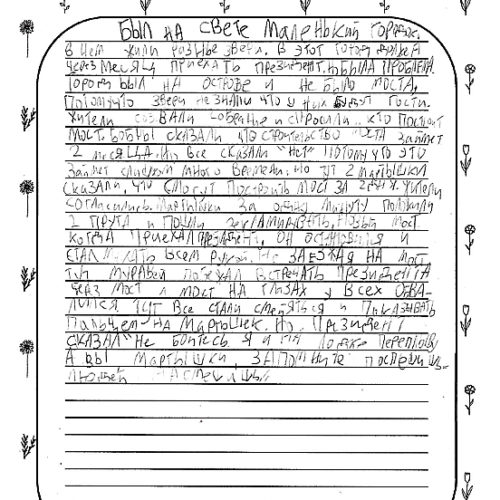 Был на свете маленький городок.
В нём жили разные звери. В этот город должен
через месяц приехать президент. Но была проблема.
Город был на острове и не было моста.
Потому что звери не знали что у них будут гости.
Жители созвали собрание и спросили кто построит
мост. Бобры сказали что строительство моста займет
2 месяца. Но все сказали "нет" потому что это
займет слишком много времени. Но тут 2 мартышки
сказали, что смогут построить мост за 2 дня. Жители
согласились. Мартышки за одну минуту положили
2 прута и пошли новый мост
когда приехал президент, он остановился и
стал махать всем рукой. Не заезжая на мост
тут муравей поехал встречать президента
через мост и мост на глазах у всех обва-
лился. Тут все стали смеяться и показывать
пальцем на мартышек. Но президент
сказал "Не бойтесь я и на лодке переплыву
А вы мартышки, запомните поспешишь-
людей насмешишь